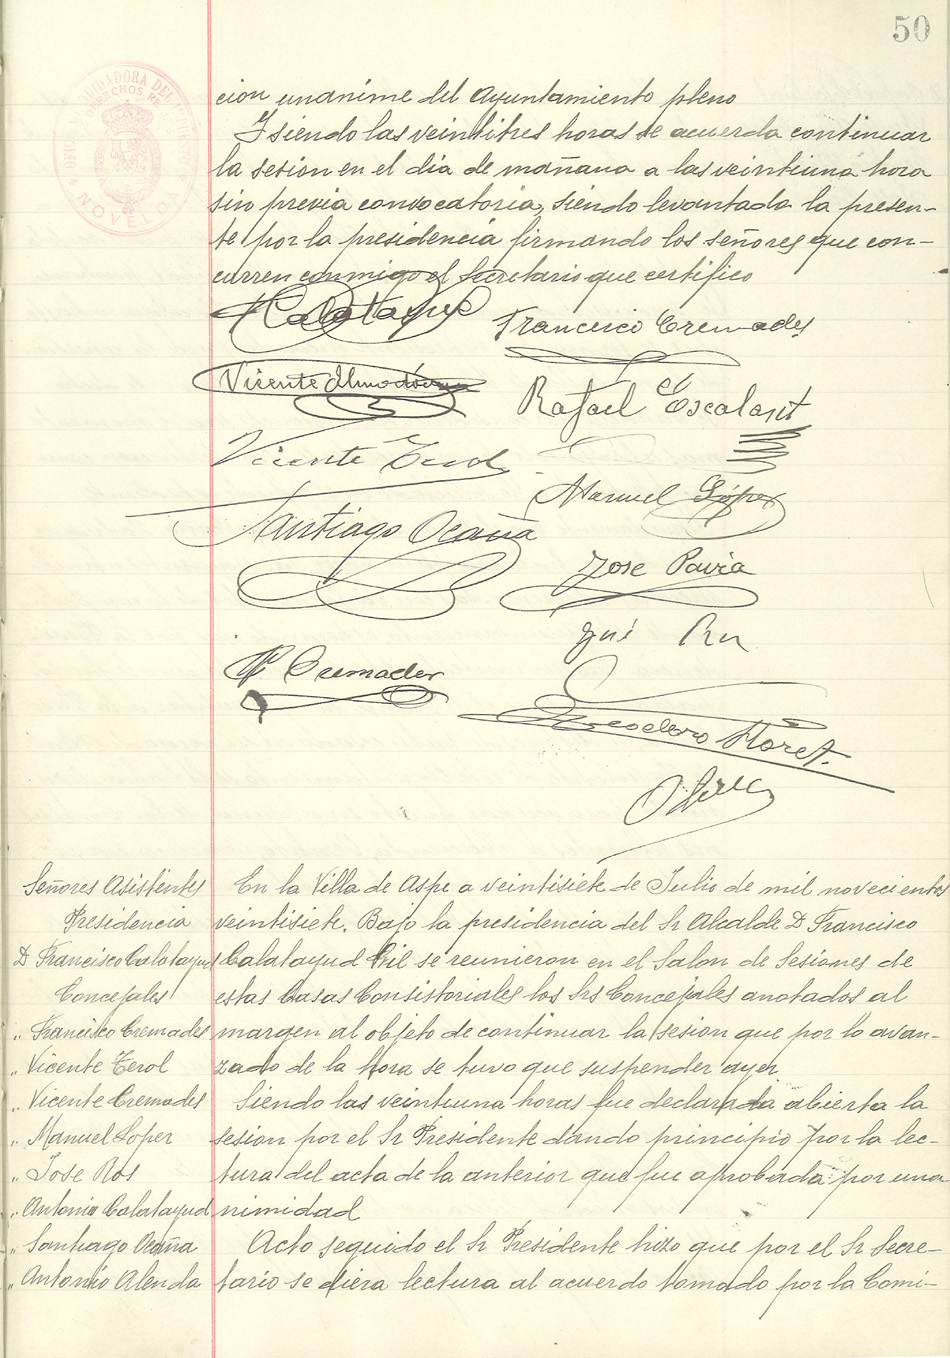 50
cion unanime del Ayuntamiento pleno
Y siendo las veintitres horas se acuerda continuar
la sesion en el dia de mañana a las veintiuna hora
sin previa convocatoria, siendo levantada la presen-
te por la presidencia firmando los señores que con-
curren conmigo el Secretario que certifico
Calatayud
Francisco Cremades
Vicente Almodóvar
Rafael Escalant
Vicente Terol
Manuel López
Santiago Ocaña
Jose Pavia
José
Cremades
Teodoro Floret.
Señores Asistentes
Presidencia
D Francisco Calatayud
Concejales
" Francisco Cremades
" Vicente Terol
" Vicente Cremades
" Manuel Loper
" Jose Ros
" Antonio Calatayud
" Santiago Ocaña
" Antonio Alenda
En la Villa de Aspe a veintisiete de Julio de mil novecientos
veintisiete. Bajo la presidencia del Sr Alcalde D Francisco
Calatayud Gil se reunieron en el Salon de Sesiones de
estas Casas Consistoriales los Srs Concejales anotados al
margen al objeto de continuar la sesion que por lo avan-
zado de la hora se tuvo que suspender ayer
Siendo las veintiuna horas fue declarada abierta la
sesion por el Sr Presidente dando principio por la lec-
tura del acta de la anterior que fue aprobada por una
nimidad
Acto seguido el Sr Presidente hizo que por el Sr Secre-
tario se diera lectura al acuerdo tomado por la Comi-